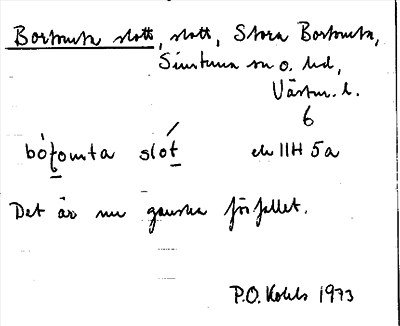 Bortomta slott, slott, Stora Bortomta,
Simtuna sn o. hd,
Västm. l.
6
bótomta slót ek 11H 5a
Det är nu ganska förfallet.
P.O. Kohls 1973